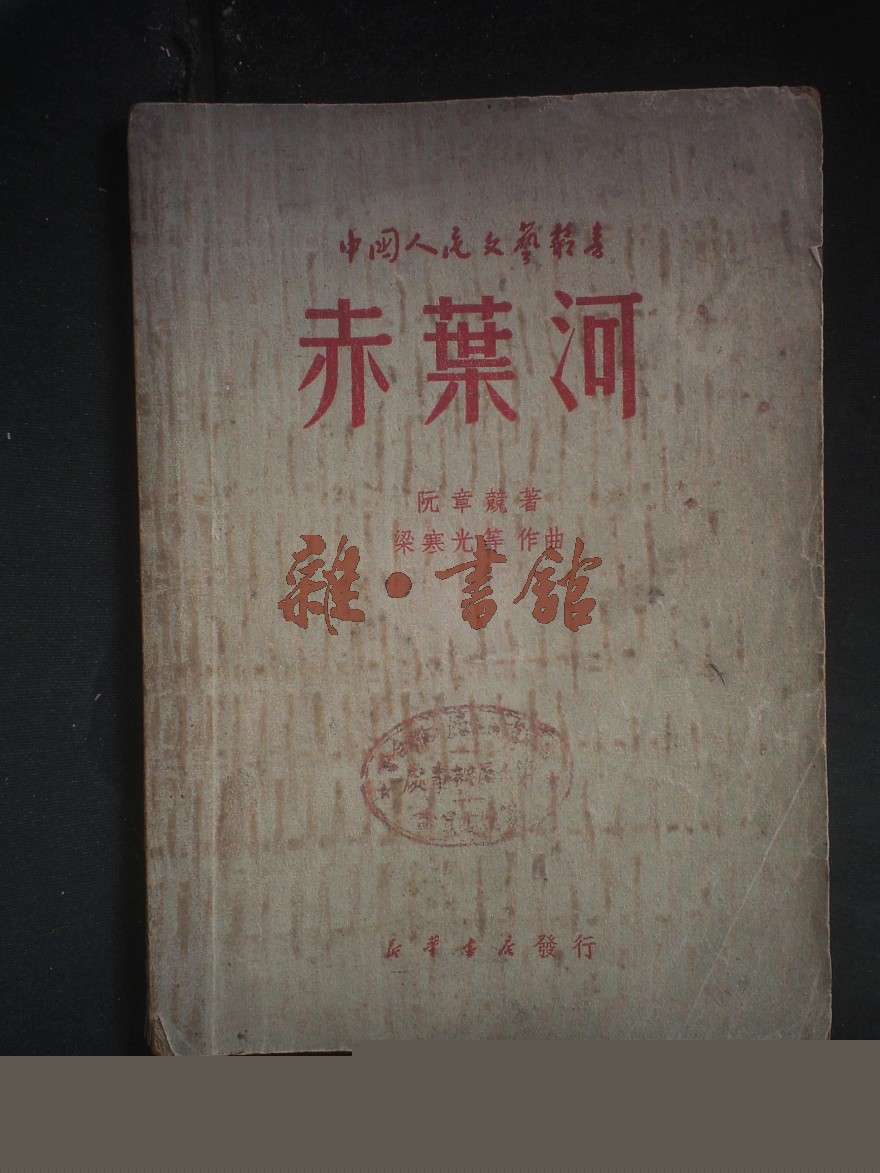 中國人民文藝叢書
赤葉河
阮章競著
梁寒光等作曲
雜·書館
新華書店發行